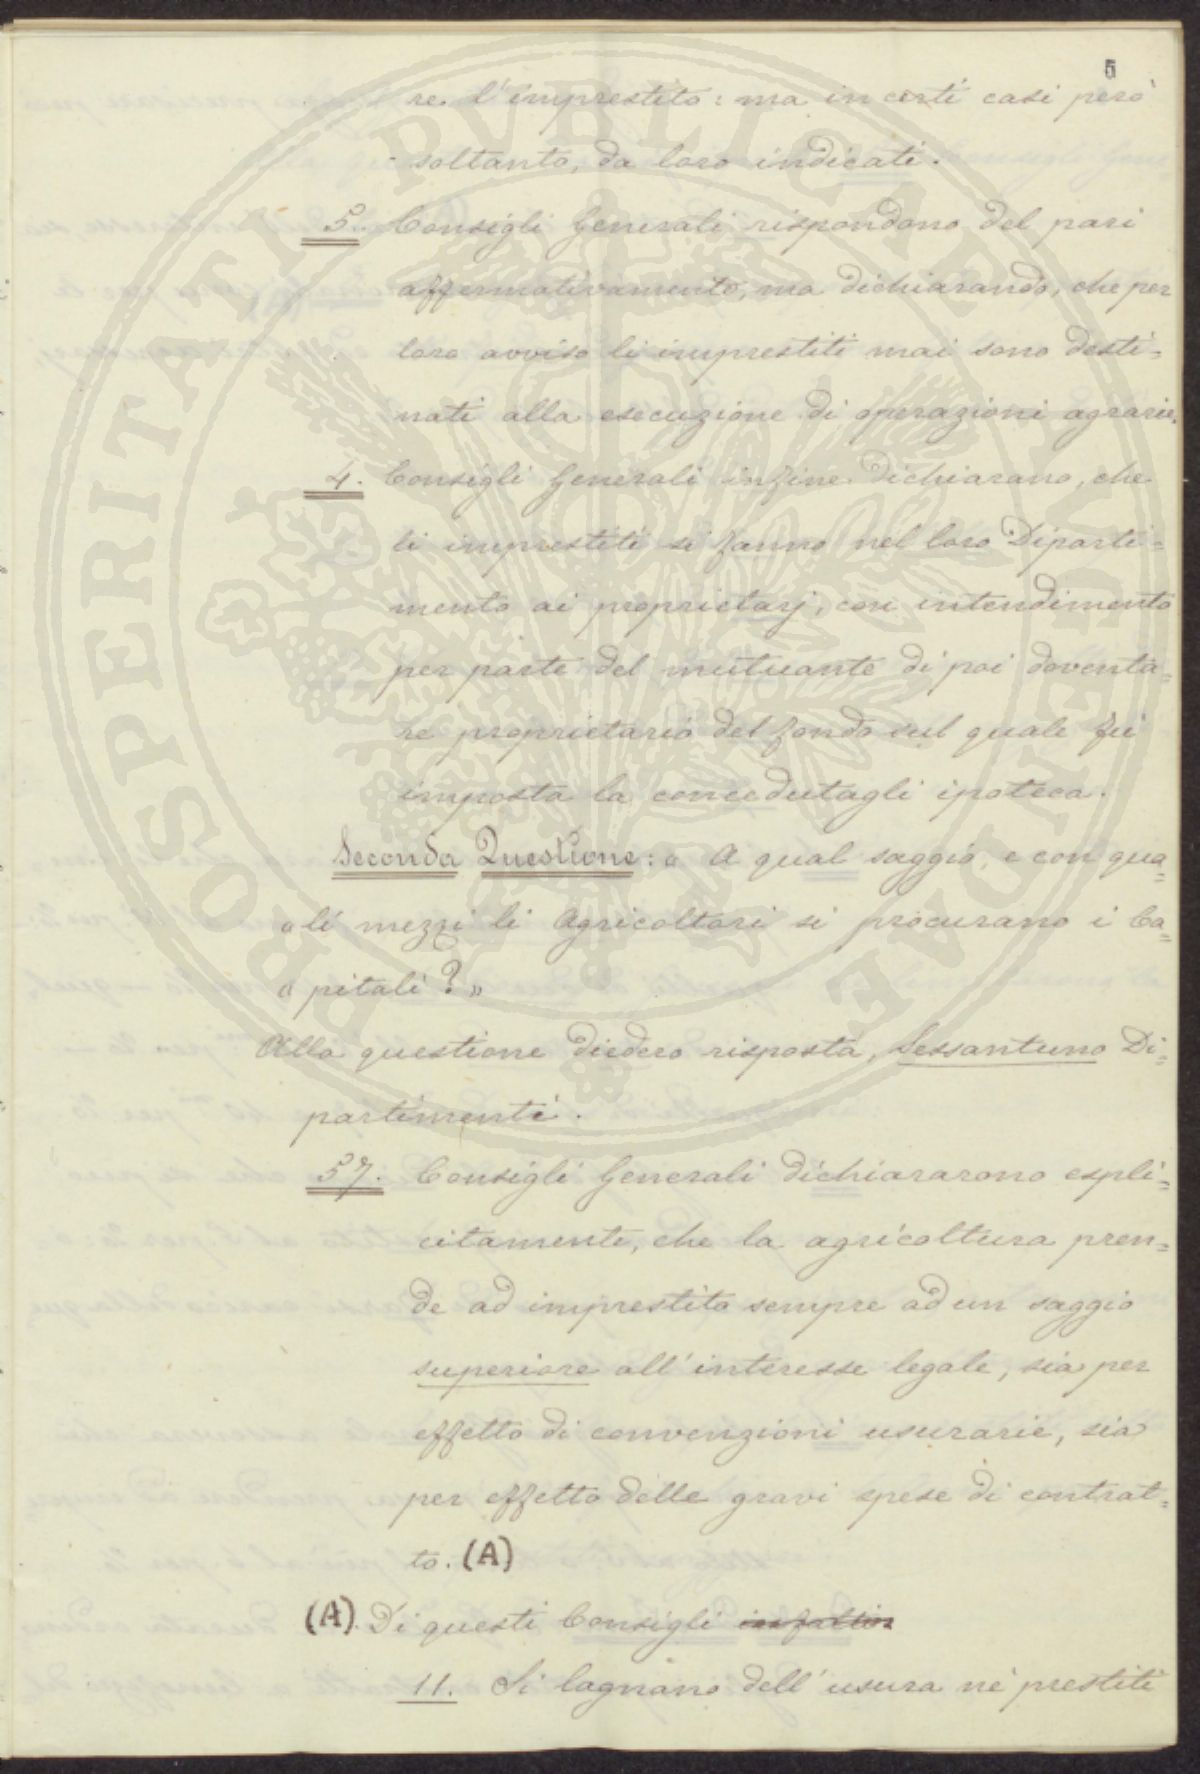 5
re l'imprestito: ma in certi casi però
soltanto, da loro indicati.
5. Consigli Generali rispondono del pari
affermativamente, ma dichiarando, che per
loro avviso li imprestiti mai sono desti=
nati alla esecuzione di operazioni agrarie.
4. Consigli Generali infine dichiarano, che
li imprestiti si fanno nel loro Diparti=
mento ai proprietarj, con intendimento
per parte del mutuante di poi doventa=
re proprietario del fondo sul quale fù
imposta la concedutagli ipoteca.
Seconda Questione: « A qual saggio, e con qua=
« li mezzi li Agricoltori si procurano i Ca=
« pitali? »
Alla questione diedero risposta, Sessantuno Di=
partimenti.
57. Consigli Generali dichiararono espli=
citamente, che la agricoltura pren=
de ad imprestito sempre ad un saggio
superiore all'interesse legale, sia per
effetto di convenzioni usurarie, sia
per effetto delle gravi spese di contrat=
to. (A)
(A). Di questi Consigli
11. Si lagnano dell'usura ne' prestiti
PROSPERITATI PVBLICAE AVGENDAE